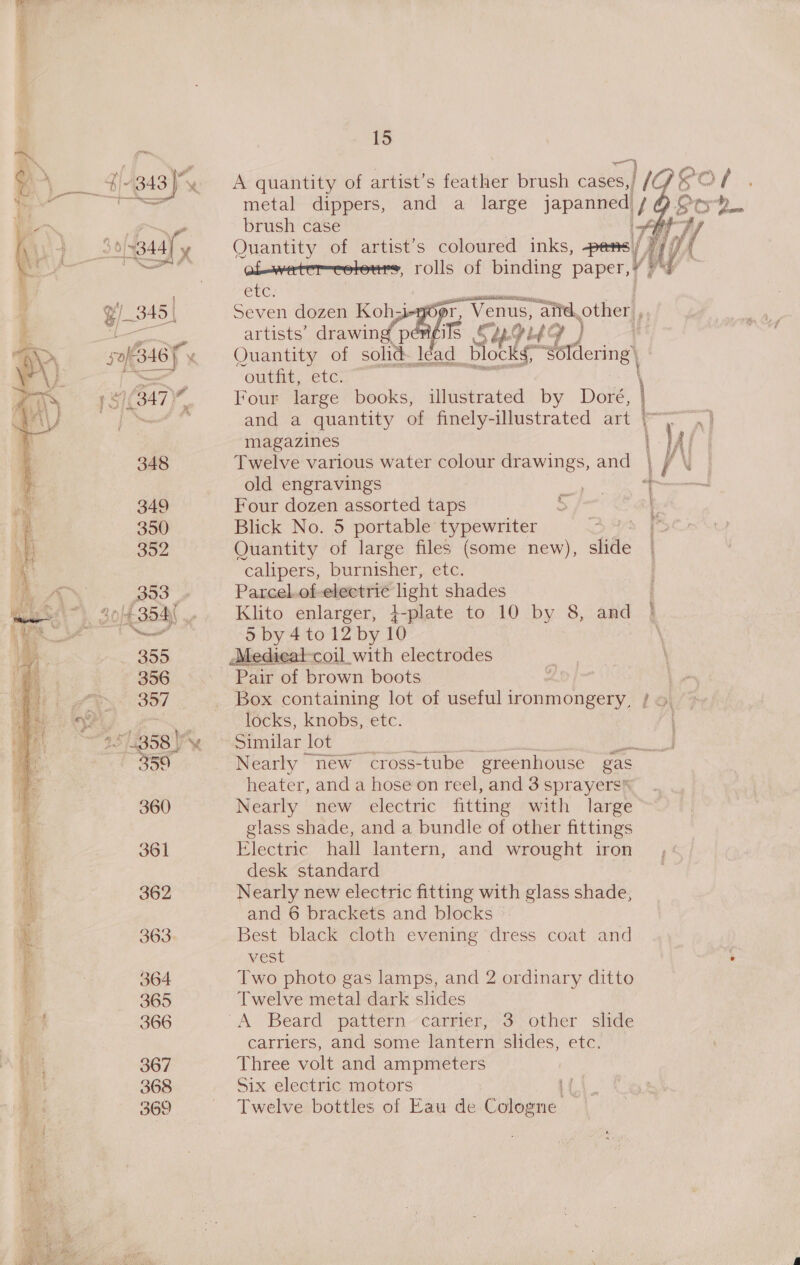 15
343 A quantity of artist's feather brush cases,
metal dippers, and a large japanned
brush case
344 Quantity of artist's coloured inks, pens
of water colours, rolls of binding paper,
etc.
345 Seven dozen Koh-i-noor, Venus, and other
artists' drawing pencils
346 Quantity of solid lead blocks, soldering
outfit, etc.
347 Four large books, illustrated by Doré,
and a quantity of finely-illustrated art
magazines
348 Twelve various water colour drawings, and
old engravings
349 Four dozen assorted taps
350 Blick No. 5 portable typewriter
352 Quantity of large files (some new), slide
calipers, burnisher, etc.
353 Parcel of electric light shades
354 Klito enlarger, ¼-plate to 10 by 8, and
5 by 4 to 12 by 10
355 Medical coil with electrodes
356 Pair of brown boots
357 Box containing lot of useful ironmongery,
locks, knobs, etc.
358 Similar lot
359 Nearly new cross-tube greenhouse gas
heater, and a hose on reel, and 3 sprayers
360 Nearly new electric fitting with large
glass shade, and a bundle of other fittings
361 Electric hall lantern, and wrought iron
desk standard
362 Nearly new electric fitting with glass shade,
and 6 brackets and blocks
363 Best black cloth evening dress coat and
vest
364 Two photo gas lamps, and 2 ordinary ditto
365 Twelve metal dark slides
366 A Beard pattern carrier, 3 other slide
carriers, and some lantern slides, etc.
367 Three volt and ampmeters
368 Six electric motors
369 Twelve bottles of Eau de Cologne